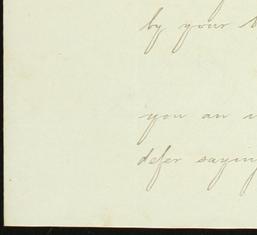 by your
you an
defer saying